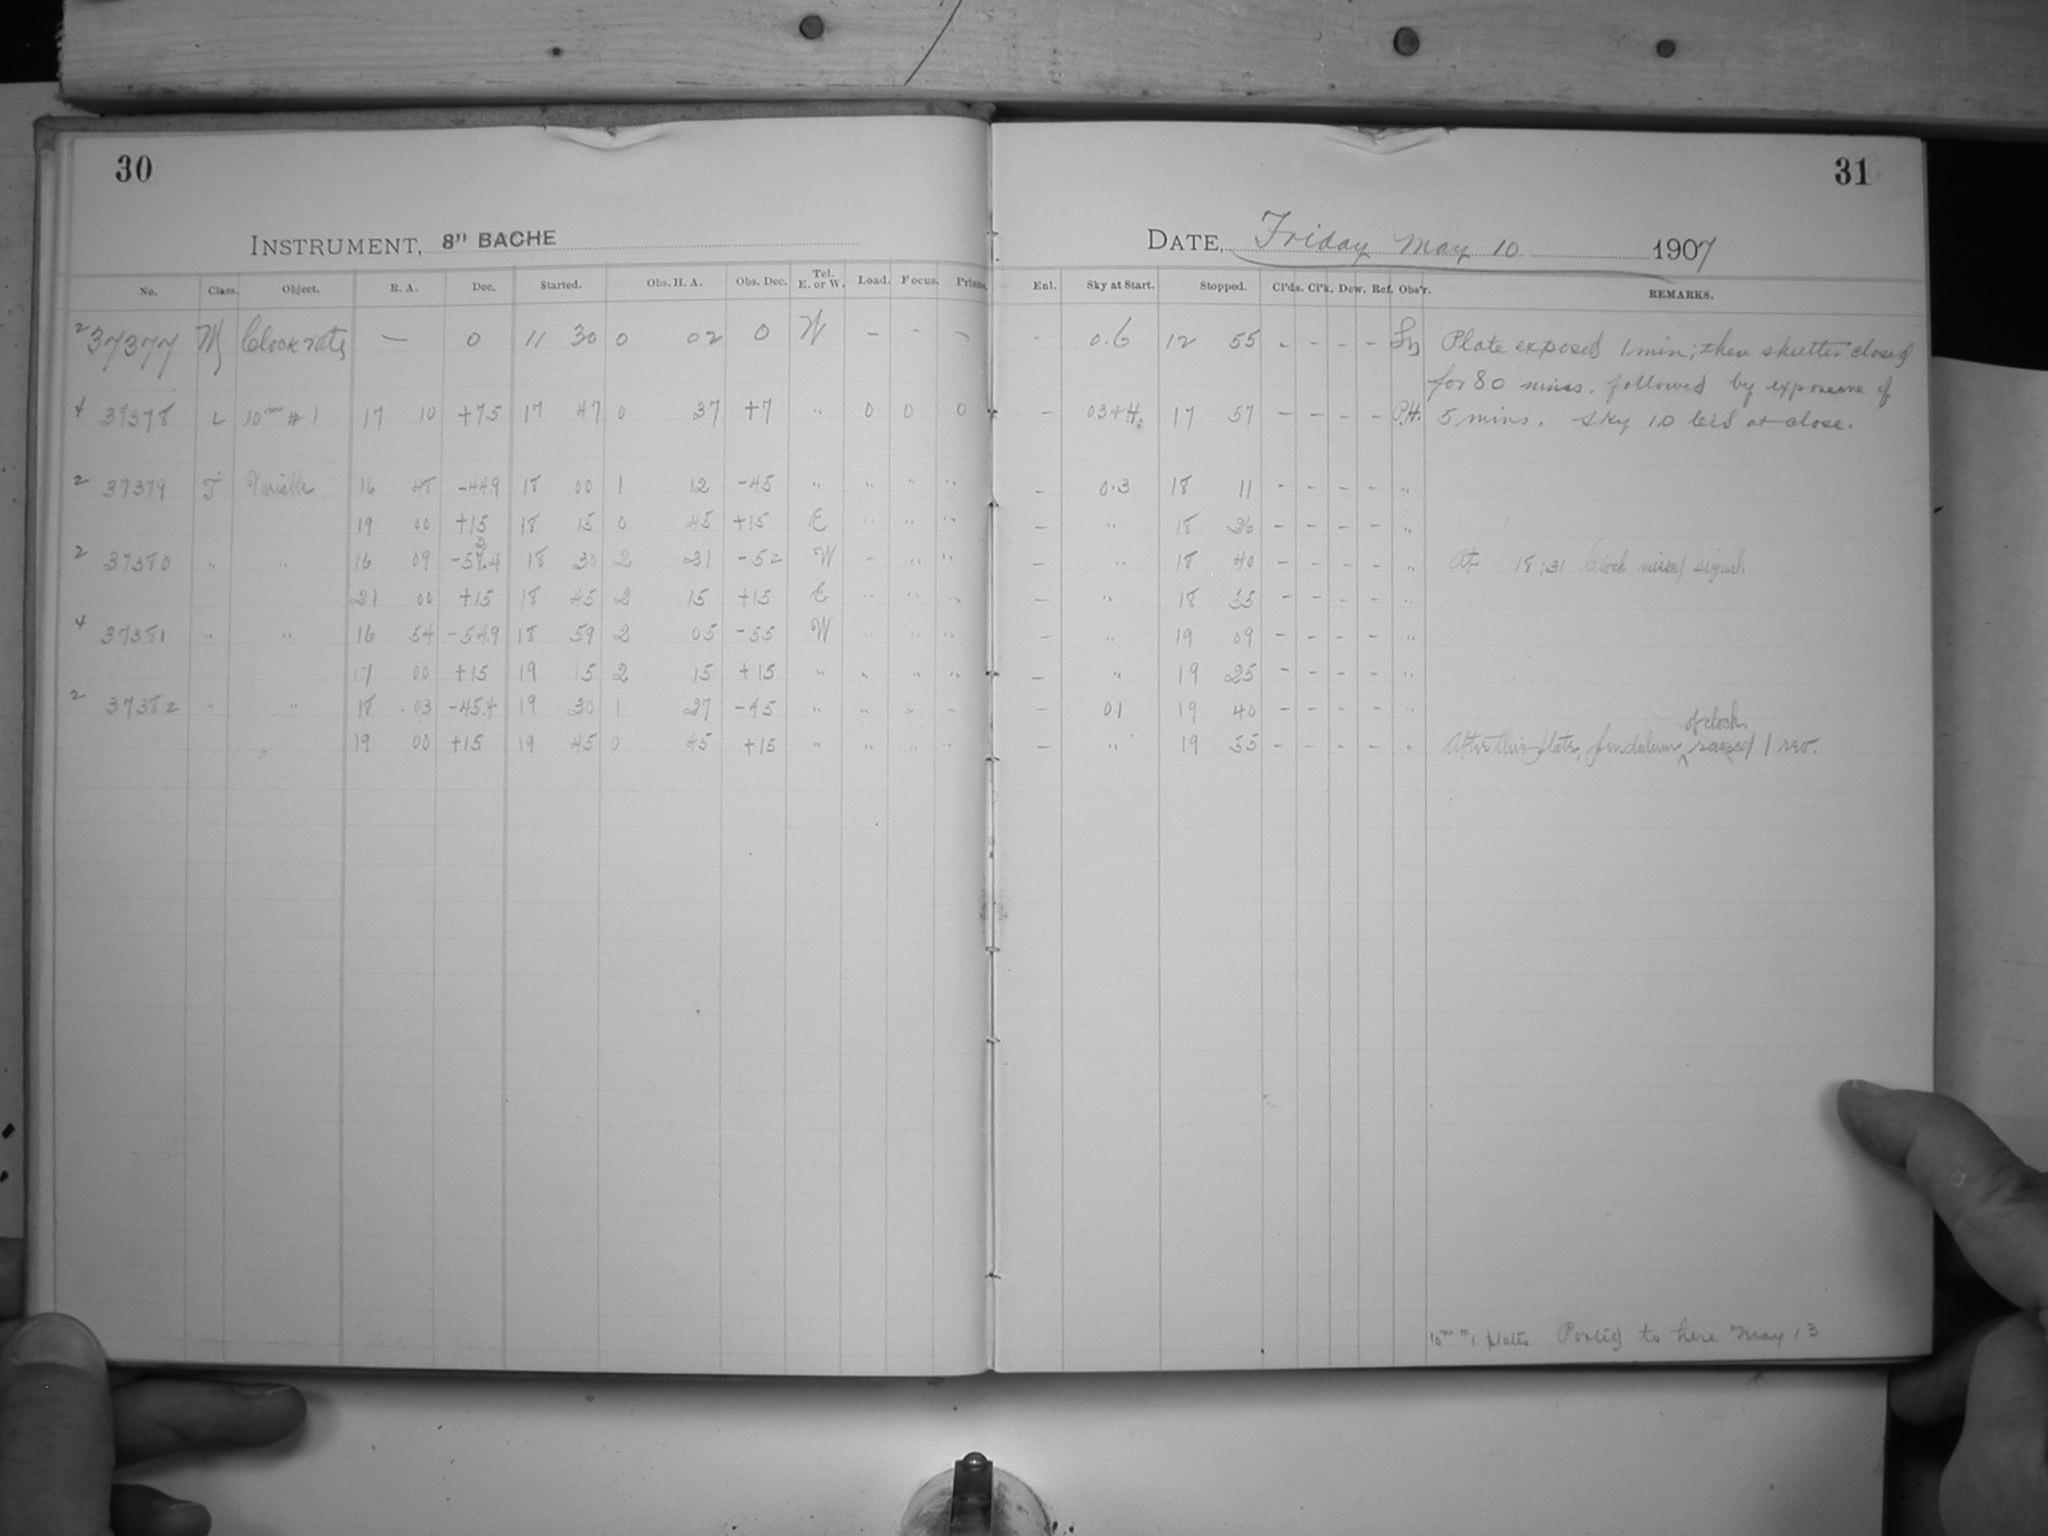 30
31
INSTRUMENT, 8" BACHE
DATE, Friday May 10 1907
No. Class. Object. R. A. Dec. Started. Obs. H. A. Obs. Dec. Tel. E. or W. Load. Focus. Prism. Enl. Sky at Start. Stopped. Cl'ds. Cl'k. Dew. Ref. Obs'r. REMARKS.
2 37377 M Clock rate — 0 11 30 0 02 0 W – – – – 0.6 12 55 – – – – Plate exposed 1 min; then shutter closed
for 80 mins. followed by exposure of
4 37378 L 10m # 1 17 10 +75 17 47 0 37 +7 " 0 0 0 – 03+H. 17 57 – – – – P.H. 5 mins. Sky 10 at close.
2 37379 J Variable 16 48 -44.9 18 00 1 12 -45 " " " " – 0.3 18 11 – – – – "
19 00 +15 18 15 0 45 +15 E " " " – " 18 26 – – – – "
2 37380 " " 16 09 -52.4 18 30 2 21 -52 W – " " – " 18 40 – – – – " At 18:31 Clock missed signal.
21 00 +15 18 45 2 15 +15 E " " " – " 18 55 – – – – "
4 37381 " " 16 54 -54.9 18 59 2 05 -55 W " " " – " 19 09 – – – – "
17 00 +15 19 15 2 15 +15 " " " " – " 19 25 – – – – "
2 37382 " " 18 03 -45.4 19 30 1 27 -45 " " " " – 01 19 40 – – – – "
19 00 +15 19 45 0 45 +15 " " " " – " 19 55 – – – – " After this plate, pendulum of clock raised 1 rev.
10m #1 plates Posted to here May 13